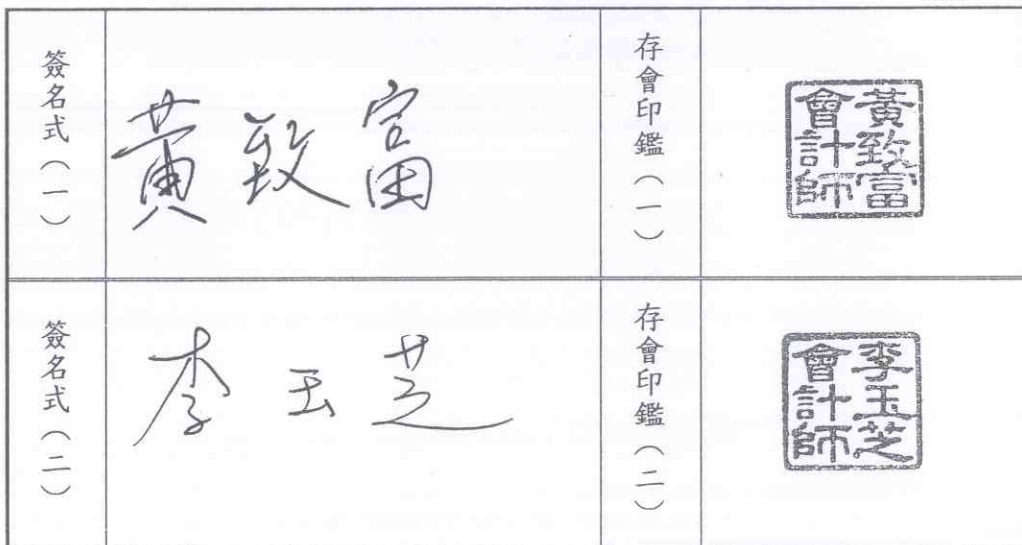 簽名式(一)
黃致富
存會印鑑(一)
黃致富
會計師
簽名式(二)
李玉芝
存會印鑑(二)
李玉芝
會計師